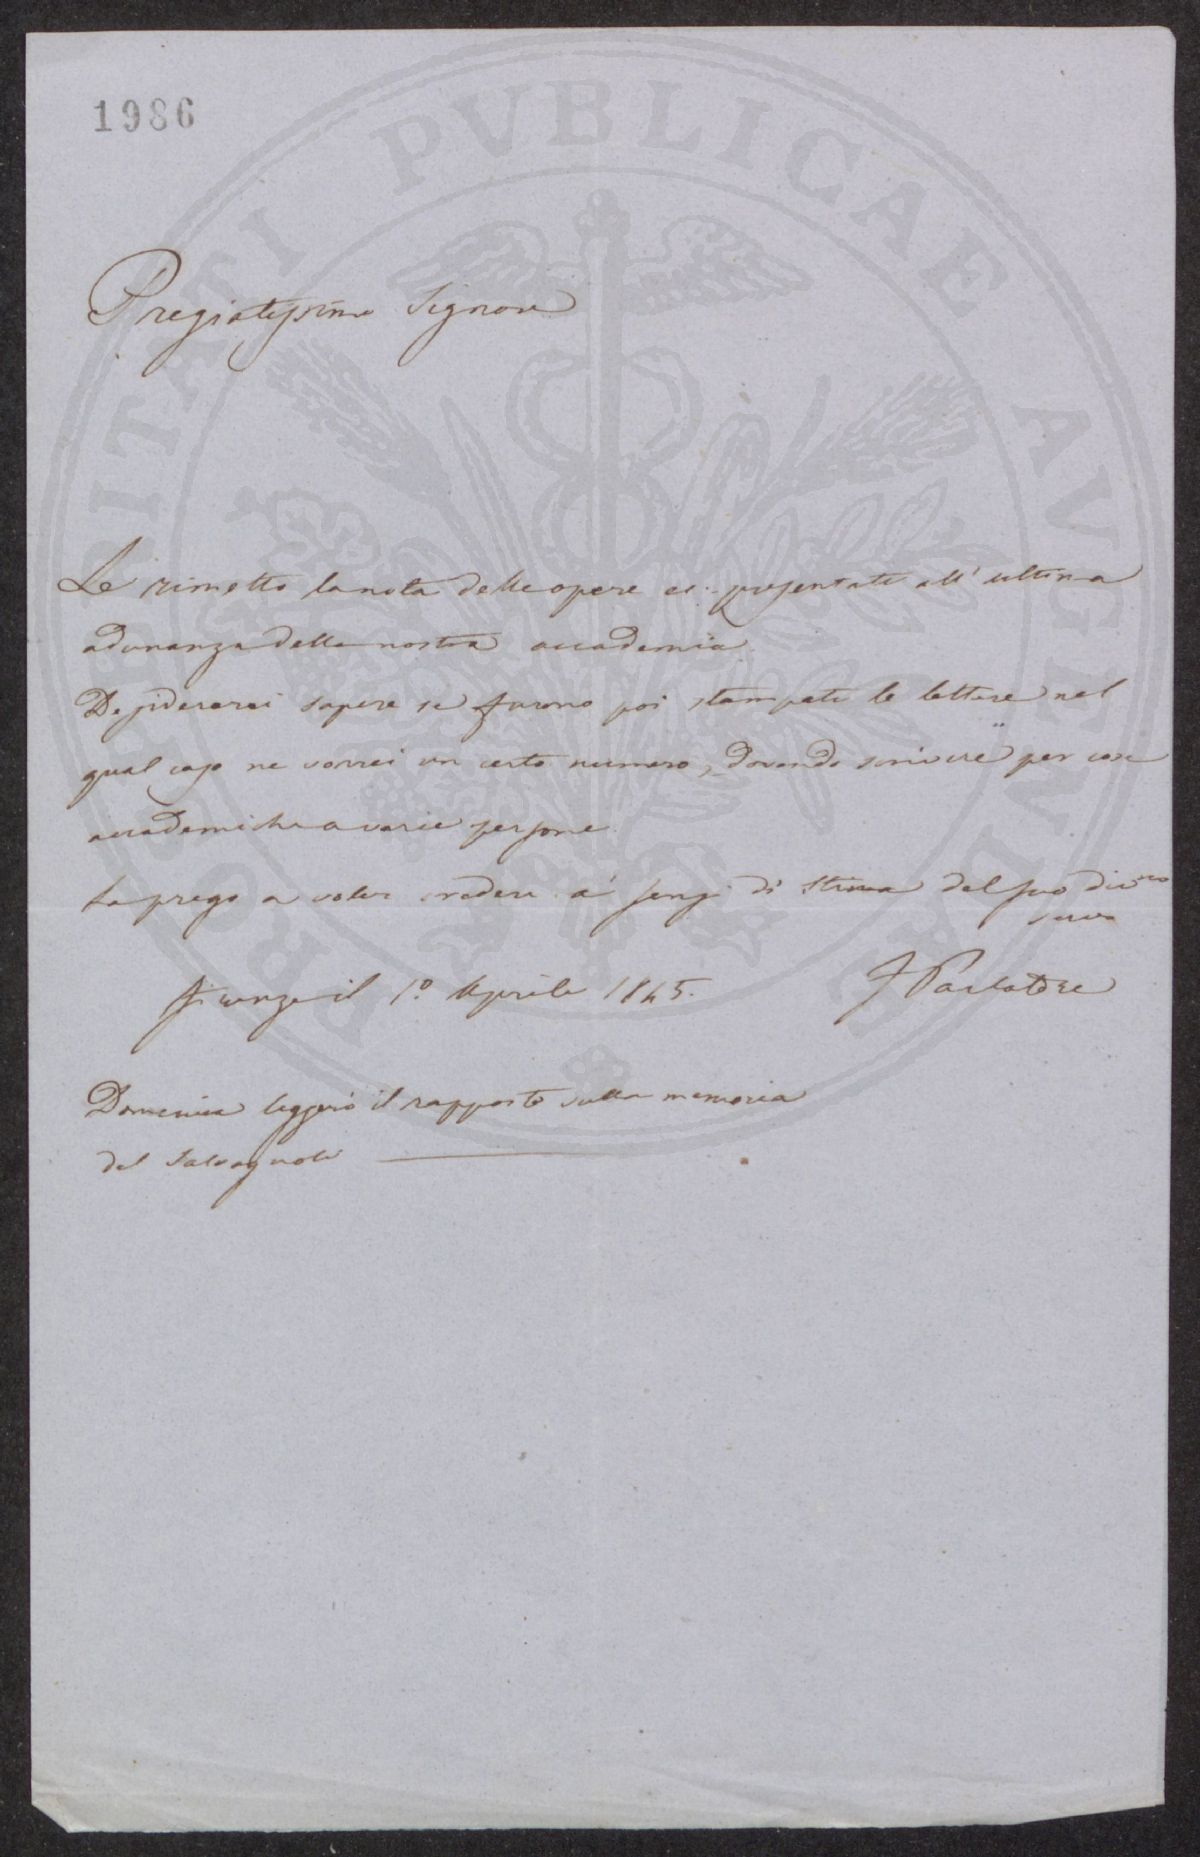 1986
PROSPERITATI PVBLICAE AVGENDAE
Pregiatissimo Signore
Le rimetto la nota delle opere ec: presentate all' ultima
adunanza della nostra accademia.
Desidererei sapere se furono poi stampate le lettere nel
qual caso ne vorrei un certo numero, dovendo scrivere per cose
accademiche a varie persone.
La prego a voler credere a' sensi di stima del suo div.mo
servo
Firenze il 1.º Aprile 1845.
F Parlatore
Domenica leggerò il rapporto sulla memoria
del Salvagnoli